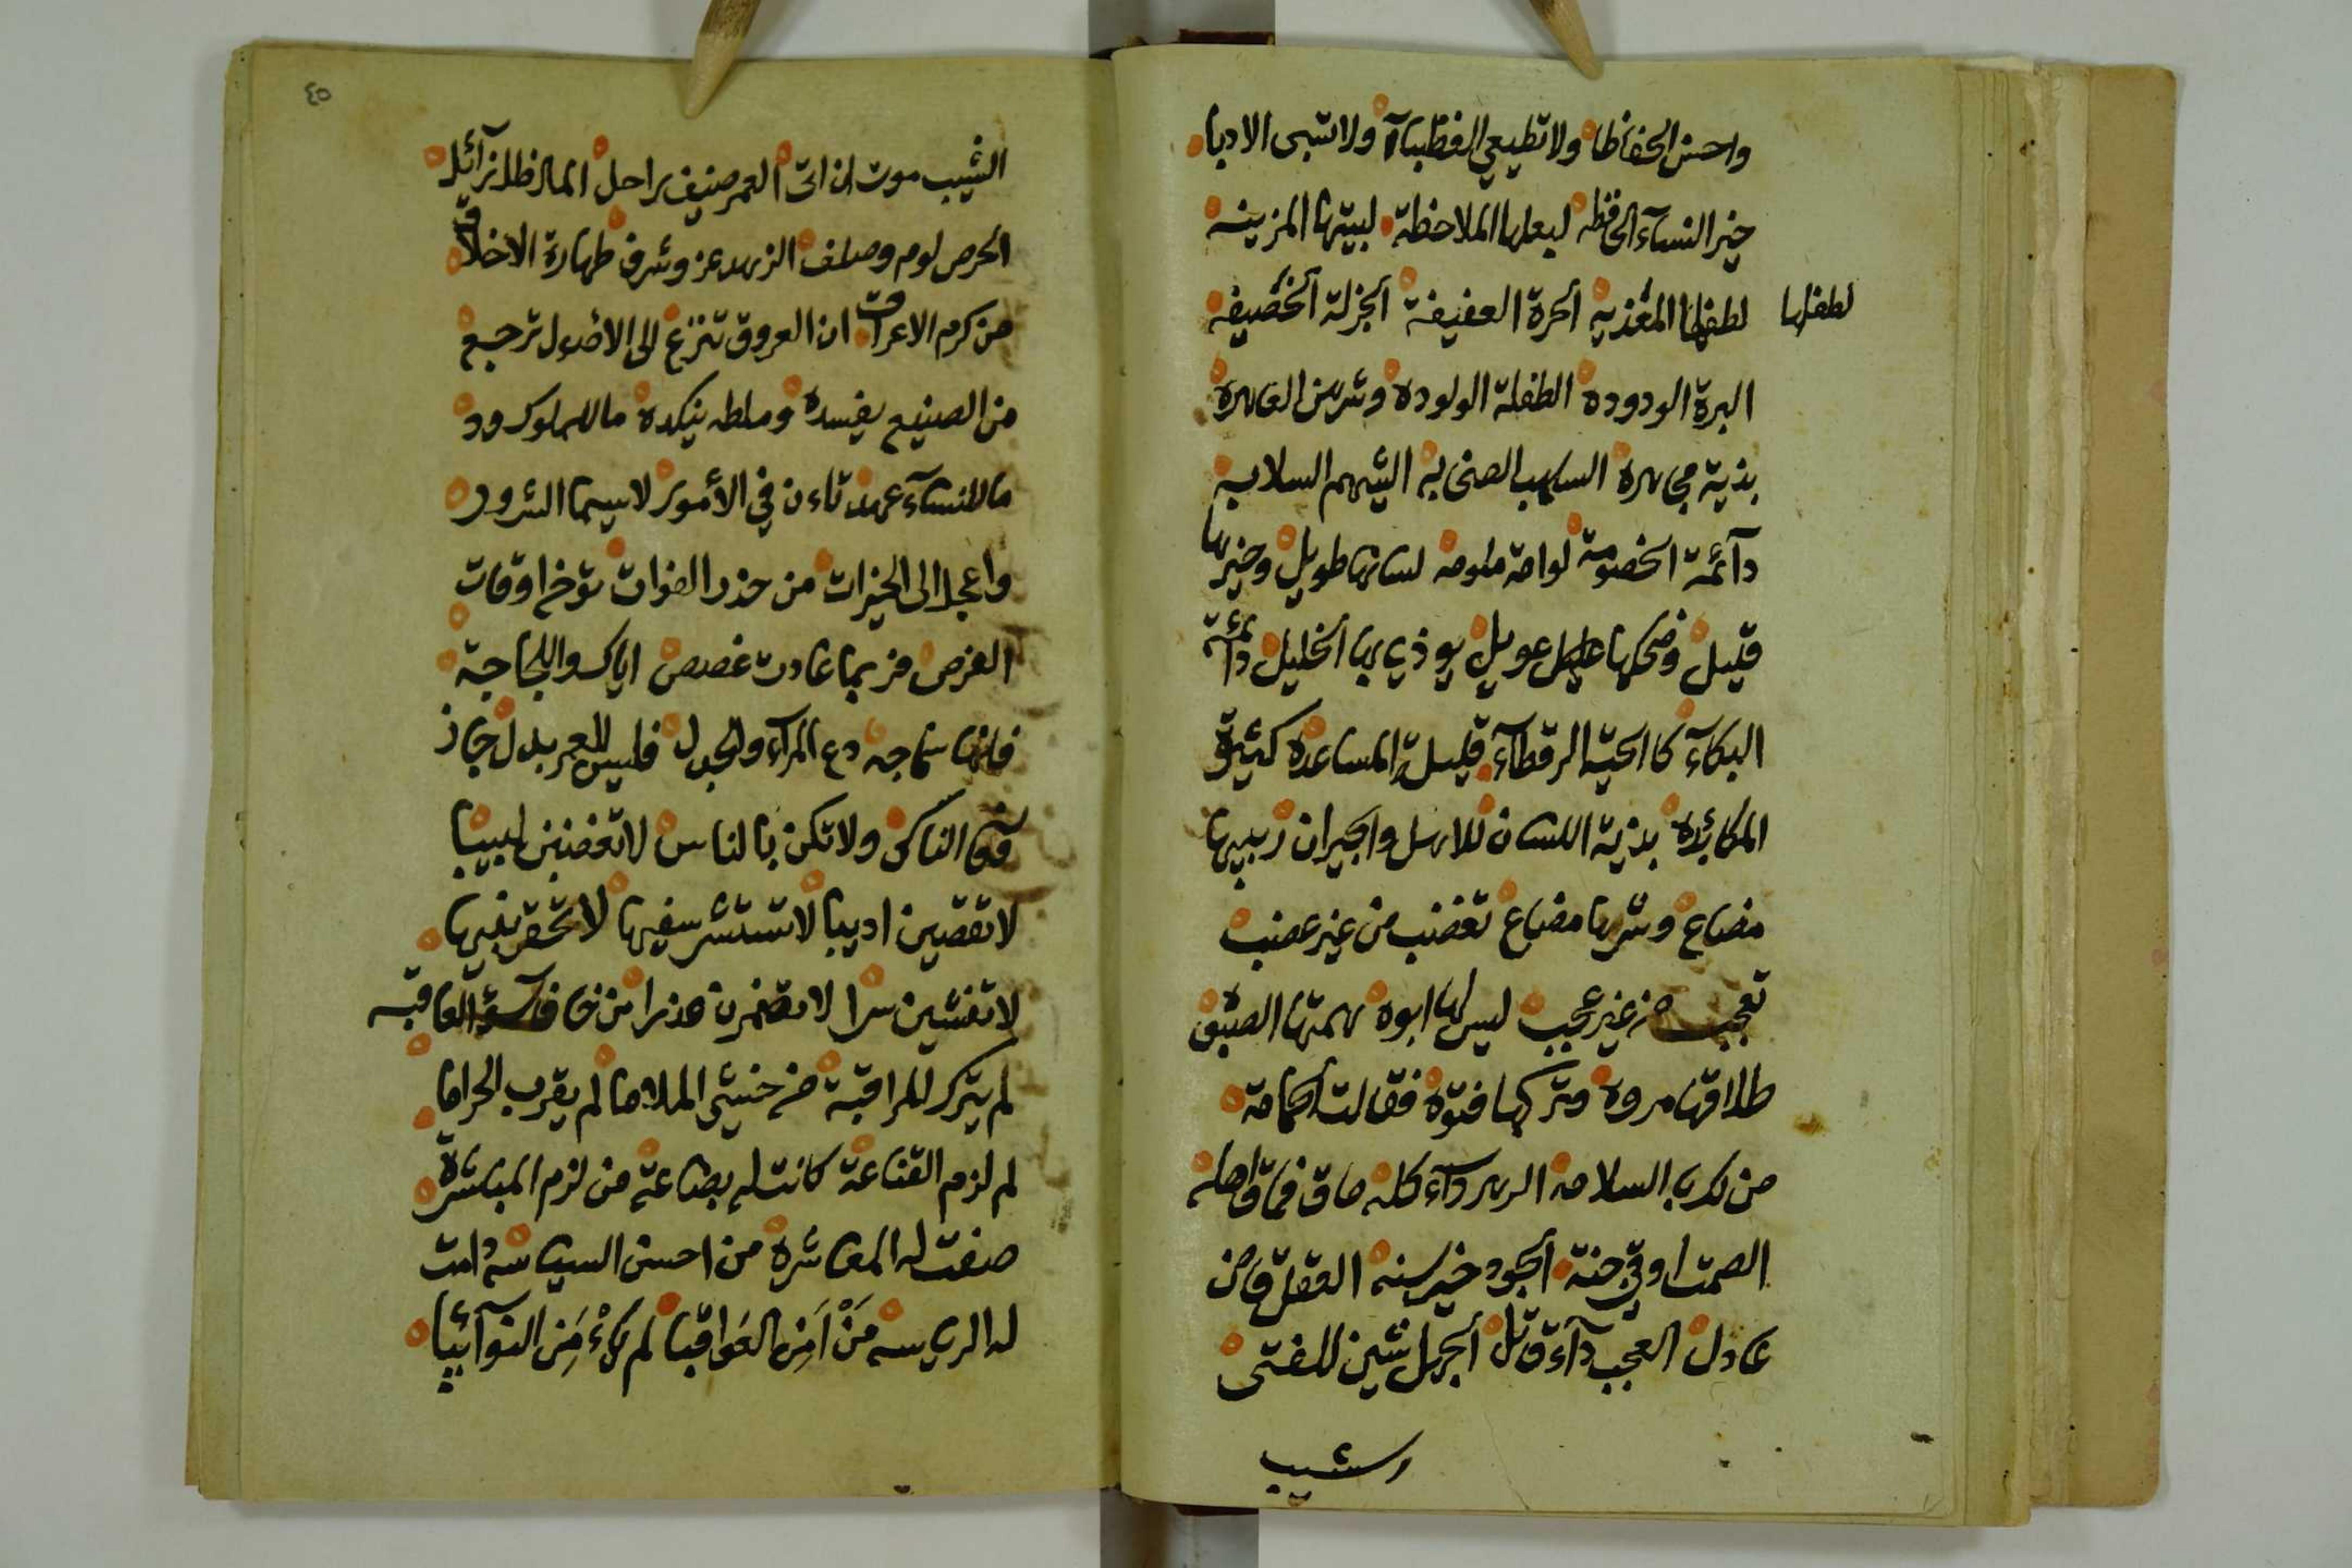 واحسن الحفاظا ولا تطيعي الغضابآ ولا تسبى الادبا
خير النسآء الحافظه لبعلها الملاحظة لبيتها المزينه
لطفلها المغذيه الحرة العفيفة الجزلة الخصيفه
لطفلها
البرة الودوده الطفلة الولوده وشرهن العاهره
بذية مجاهره الصخابه السلابه
دآئمة الخصومة لوامة ملومه لسانها طويل وخيرها
قليل وضحكها عويل يوذي بها الخليل دآئمة
البكآء كالحية الرقطآء قليلة المساعده كثيرة
المكائده بذية اللسان للاهل والجيران ربيبها
مضاع وشرها مضاع تغضب من غير غضب
تعجب من غير عجب ليس لها ابوه همتها الضيق
طلاقها مروه وتركها فتوه فقالت الحمامة
من لك بالسلامه الهرداء كله ما قاصله
الصمت اوقى جنة الجود خير سنه العقل قاض
عادل العجب دآء قاتل الجهل شين للفتى
وشيب
٤٥
الشيب موت ان اتى العمر ضيف راحل المال ظل زآئل
الحرص لوم وصلف الزهد عز وشرف طهارة الاخلاق
من كرم الاعراق ان العروق تنزع الى الاصول ترجع
من الصنيع يفسده ومطله ينكده ما للملوك ود
ما للنسآء عهد تاءن في الأمور لا سيما الشرور
واعجل الى الخيرات من حذر الفوات توخ اوقات
الفرص فربما عادت غصص اياك واللجاجة
فانها سماجه دع المرآء والجدل فليس للعمر بدل جاز
الناس ولا تكن بالناس لا تغضبن لبيبا
لا تقصين اديبا لا تستشر سفيها لا تحقر نبيها
لا تفشين سرا لا تضمرن هذرا من خاف سوء العاقبه
لم يترك المراقبة من خشى الملاما لم يقرب الحراما
لم لزم القناعة كانت له بضاعة من لزم المباشرة
صفت له المعاشره من احسن السياسه دامت
له الرياسه مَنْ اَمِن العَواقبا لم يَنْجُ مَن النوآئبا